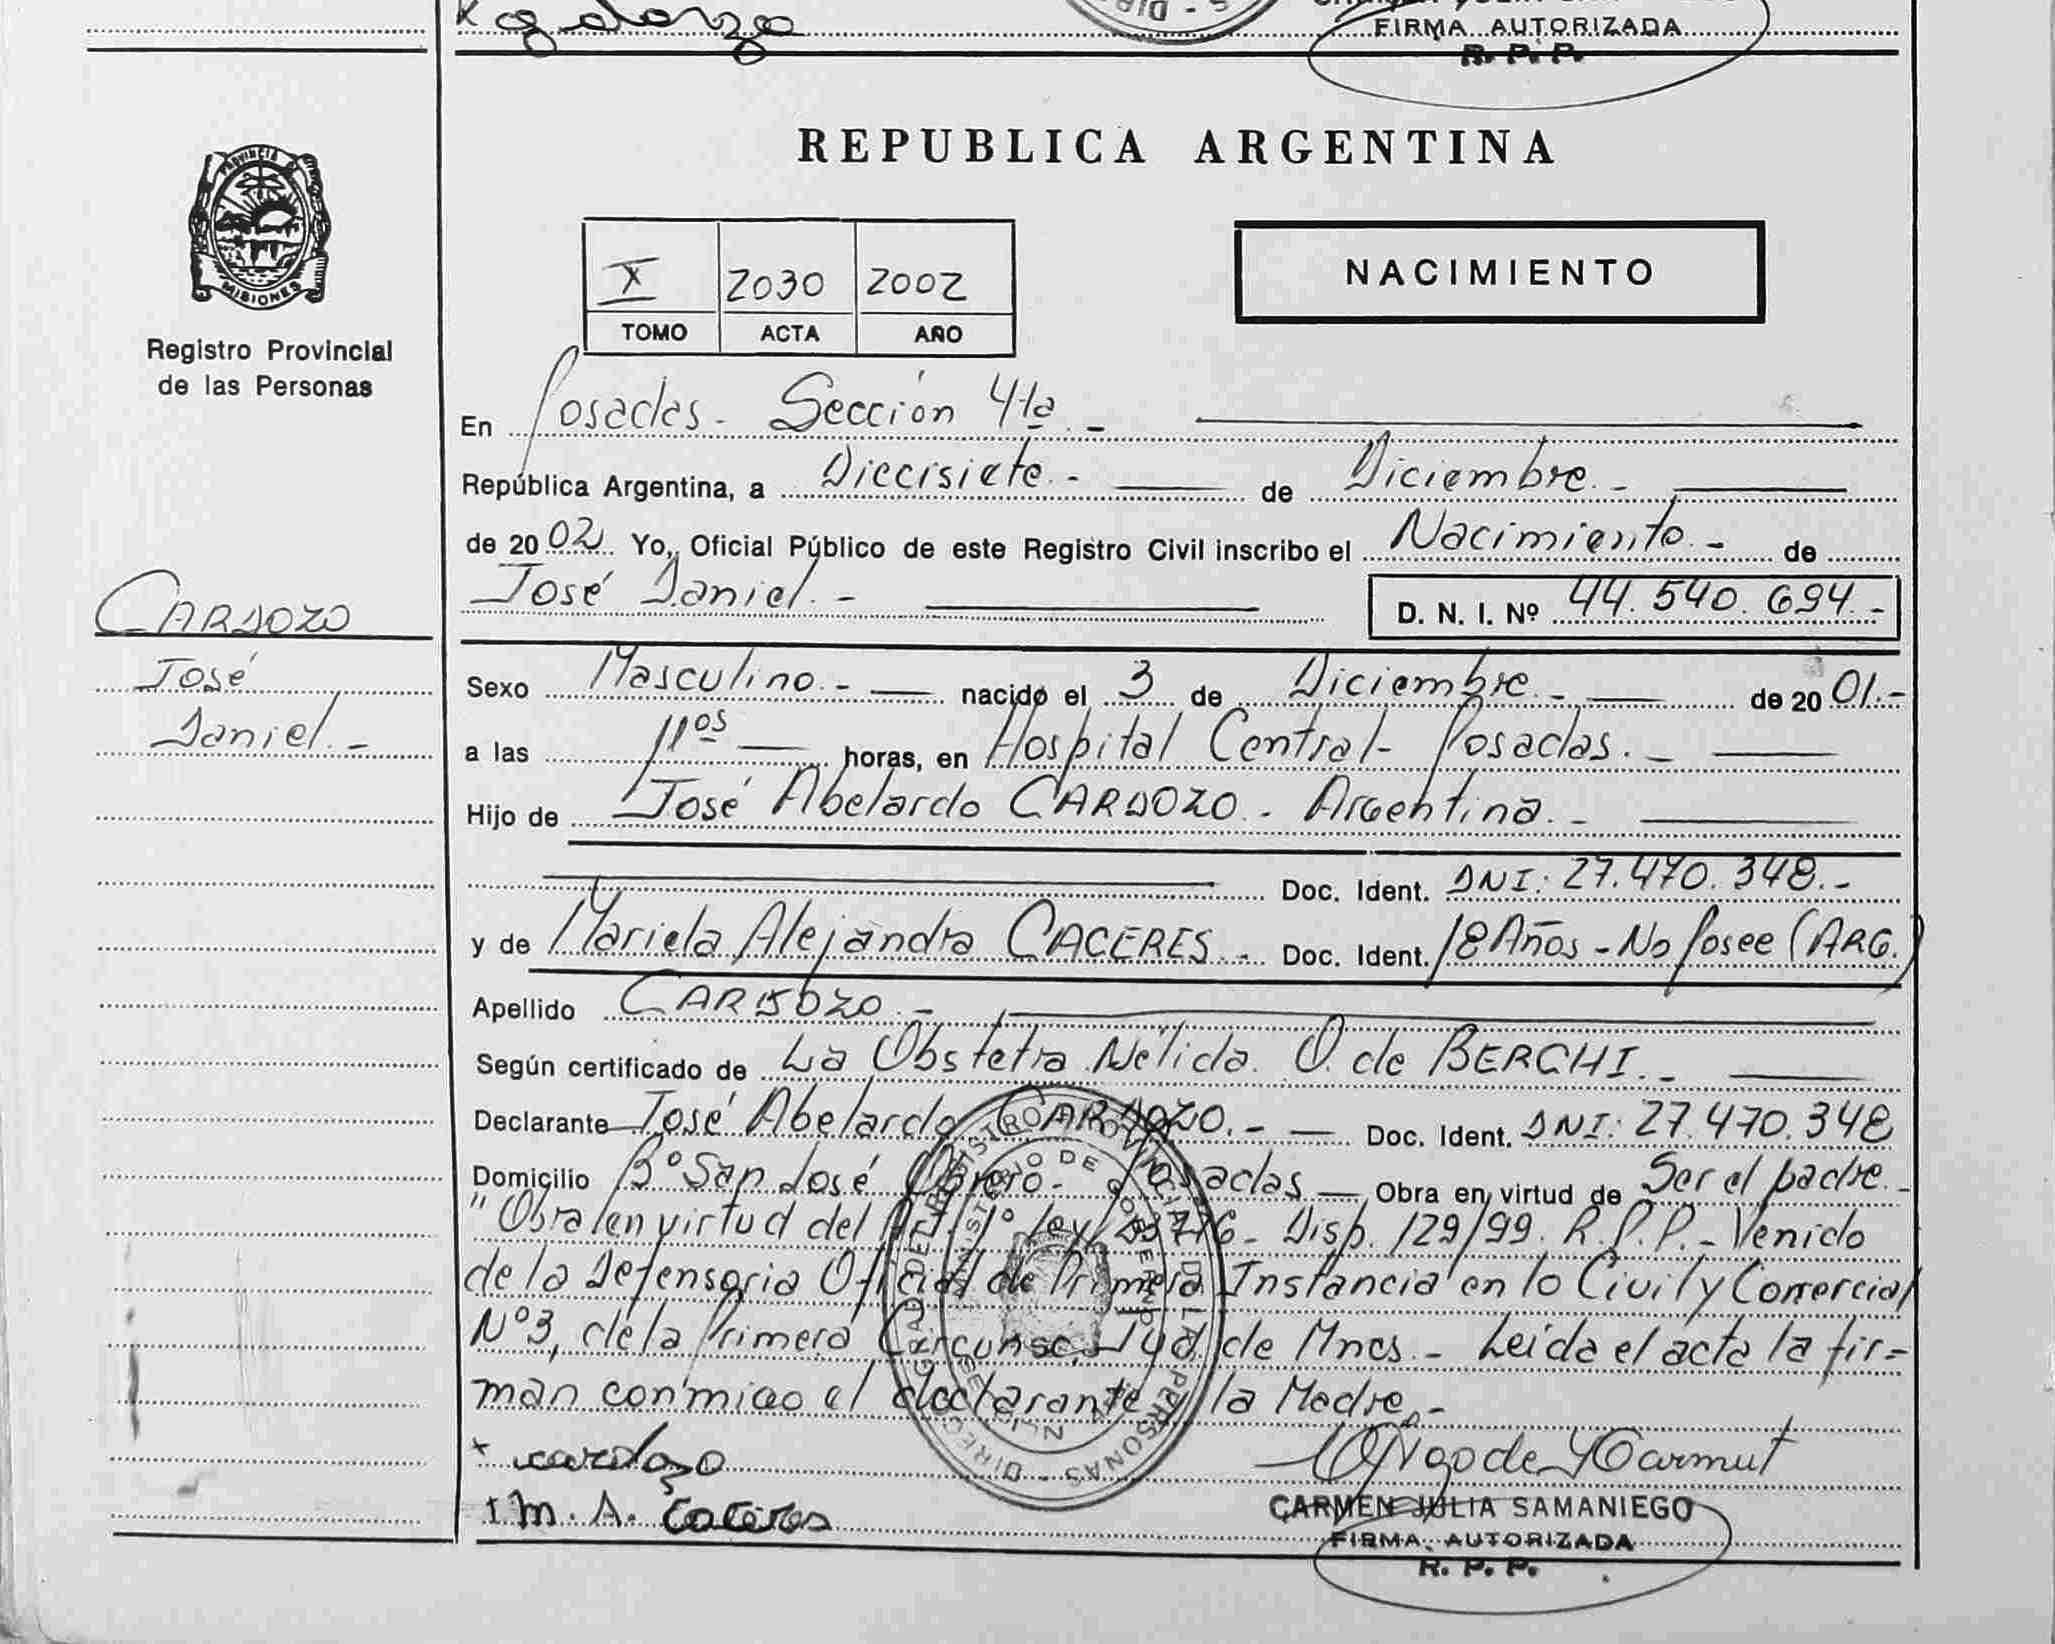 FIRMA AUTORIZADA
R. P. P.
REPUBLICA ARGENTINA
PROVINCIA DE MISIONES
Registro Provincial
de las Personas
X 2030 2002
TOMO ACTA AÑO
NACIMIENTO
En Posadas - Sección 4ta. -
República Argentina, a Diecisiete. - de Diciembre. -
de 2002 Yo, Oficial Público de este Registro Civil inscribo el Nacimiento. - de
José Daniel. - D. N. I. Nº 44.540.694.-
CARDOZO
José
Daniel. -
Sexo Masculino. - nacido el 3 de Diciembre. - de 2001.-
a las 11os horas, en Hospital Central - Posadas. -
Hijo de José Abelardo CARDOZO. - Argentina. -
Doc. Ident. DNI: 27.470.348.-
y de Mariela Alejandra CACERES. - Doc. Ident. 18 Años - No Posee (ARG.)
Apellido CARDOZO. -
Según certificado de La Obstetra Nélida O. de BERCHI. -
Declarante José Abelardo CARDOZO. - Doc. Ident. DNI: 27.470.348
Domicilio Bº San José Obrero. - Posadas - Obra en virtud de Ser el padre. -
"Obra en virtud del Art. 1º ley - Disp. 129/99. R.P.P. - Venido
de la Defensoria Oficial de Primera Instancia en lo Civil y Comercial
Nº3, de la Primera Circunsc. Jud. de Mnes. - Leida el acta la fir=
man conmigo el declarante y la Madre. -
x cardozo
x M. A. Caceres
CARMEN JULIA SAMANIEGO
FIRMA AUTORIZADA
R. P. P.